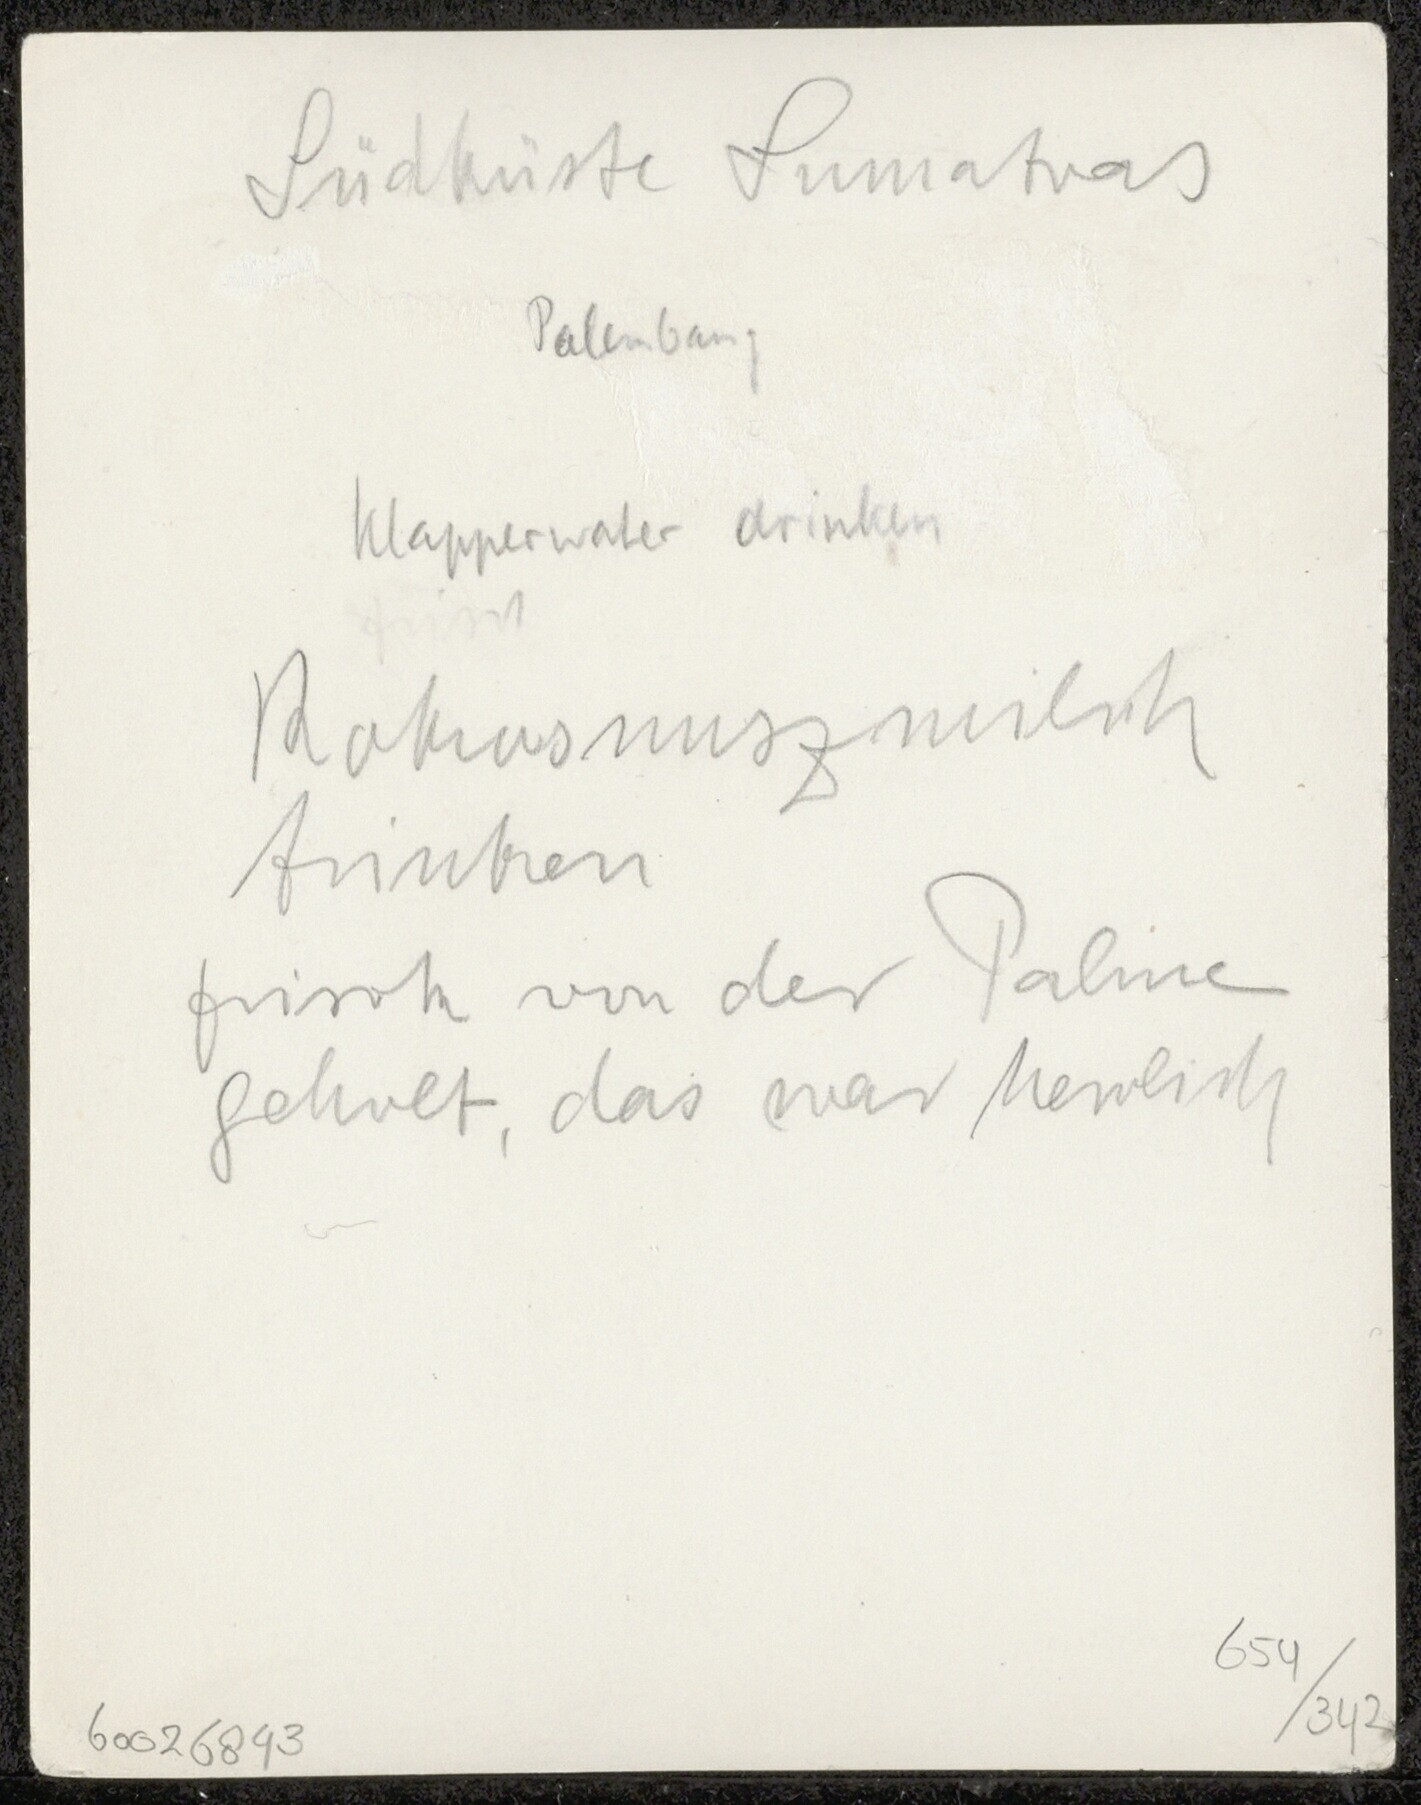 Südküste Sumatras
Palembang
Klapperwater drinken
frisch
Kokosnuszmilch
trinken
frisch von der Palme
geholt, das war herrlich
654/342
60026893